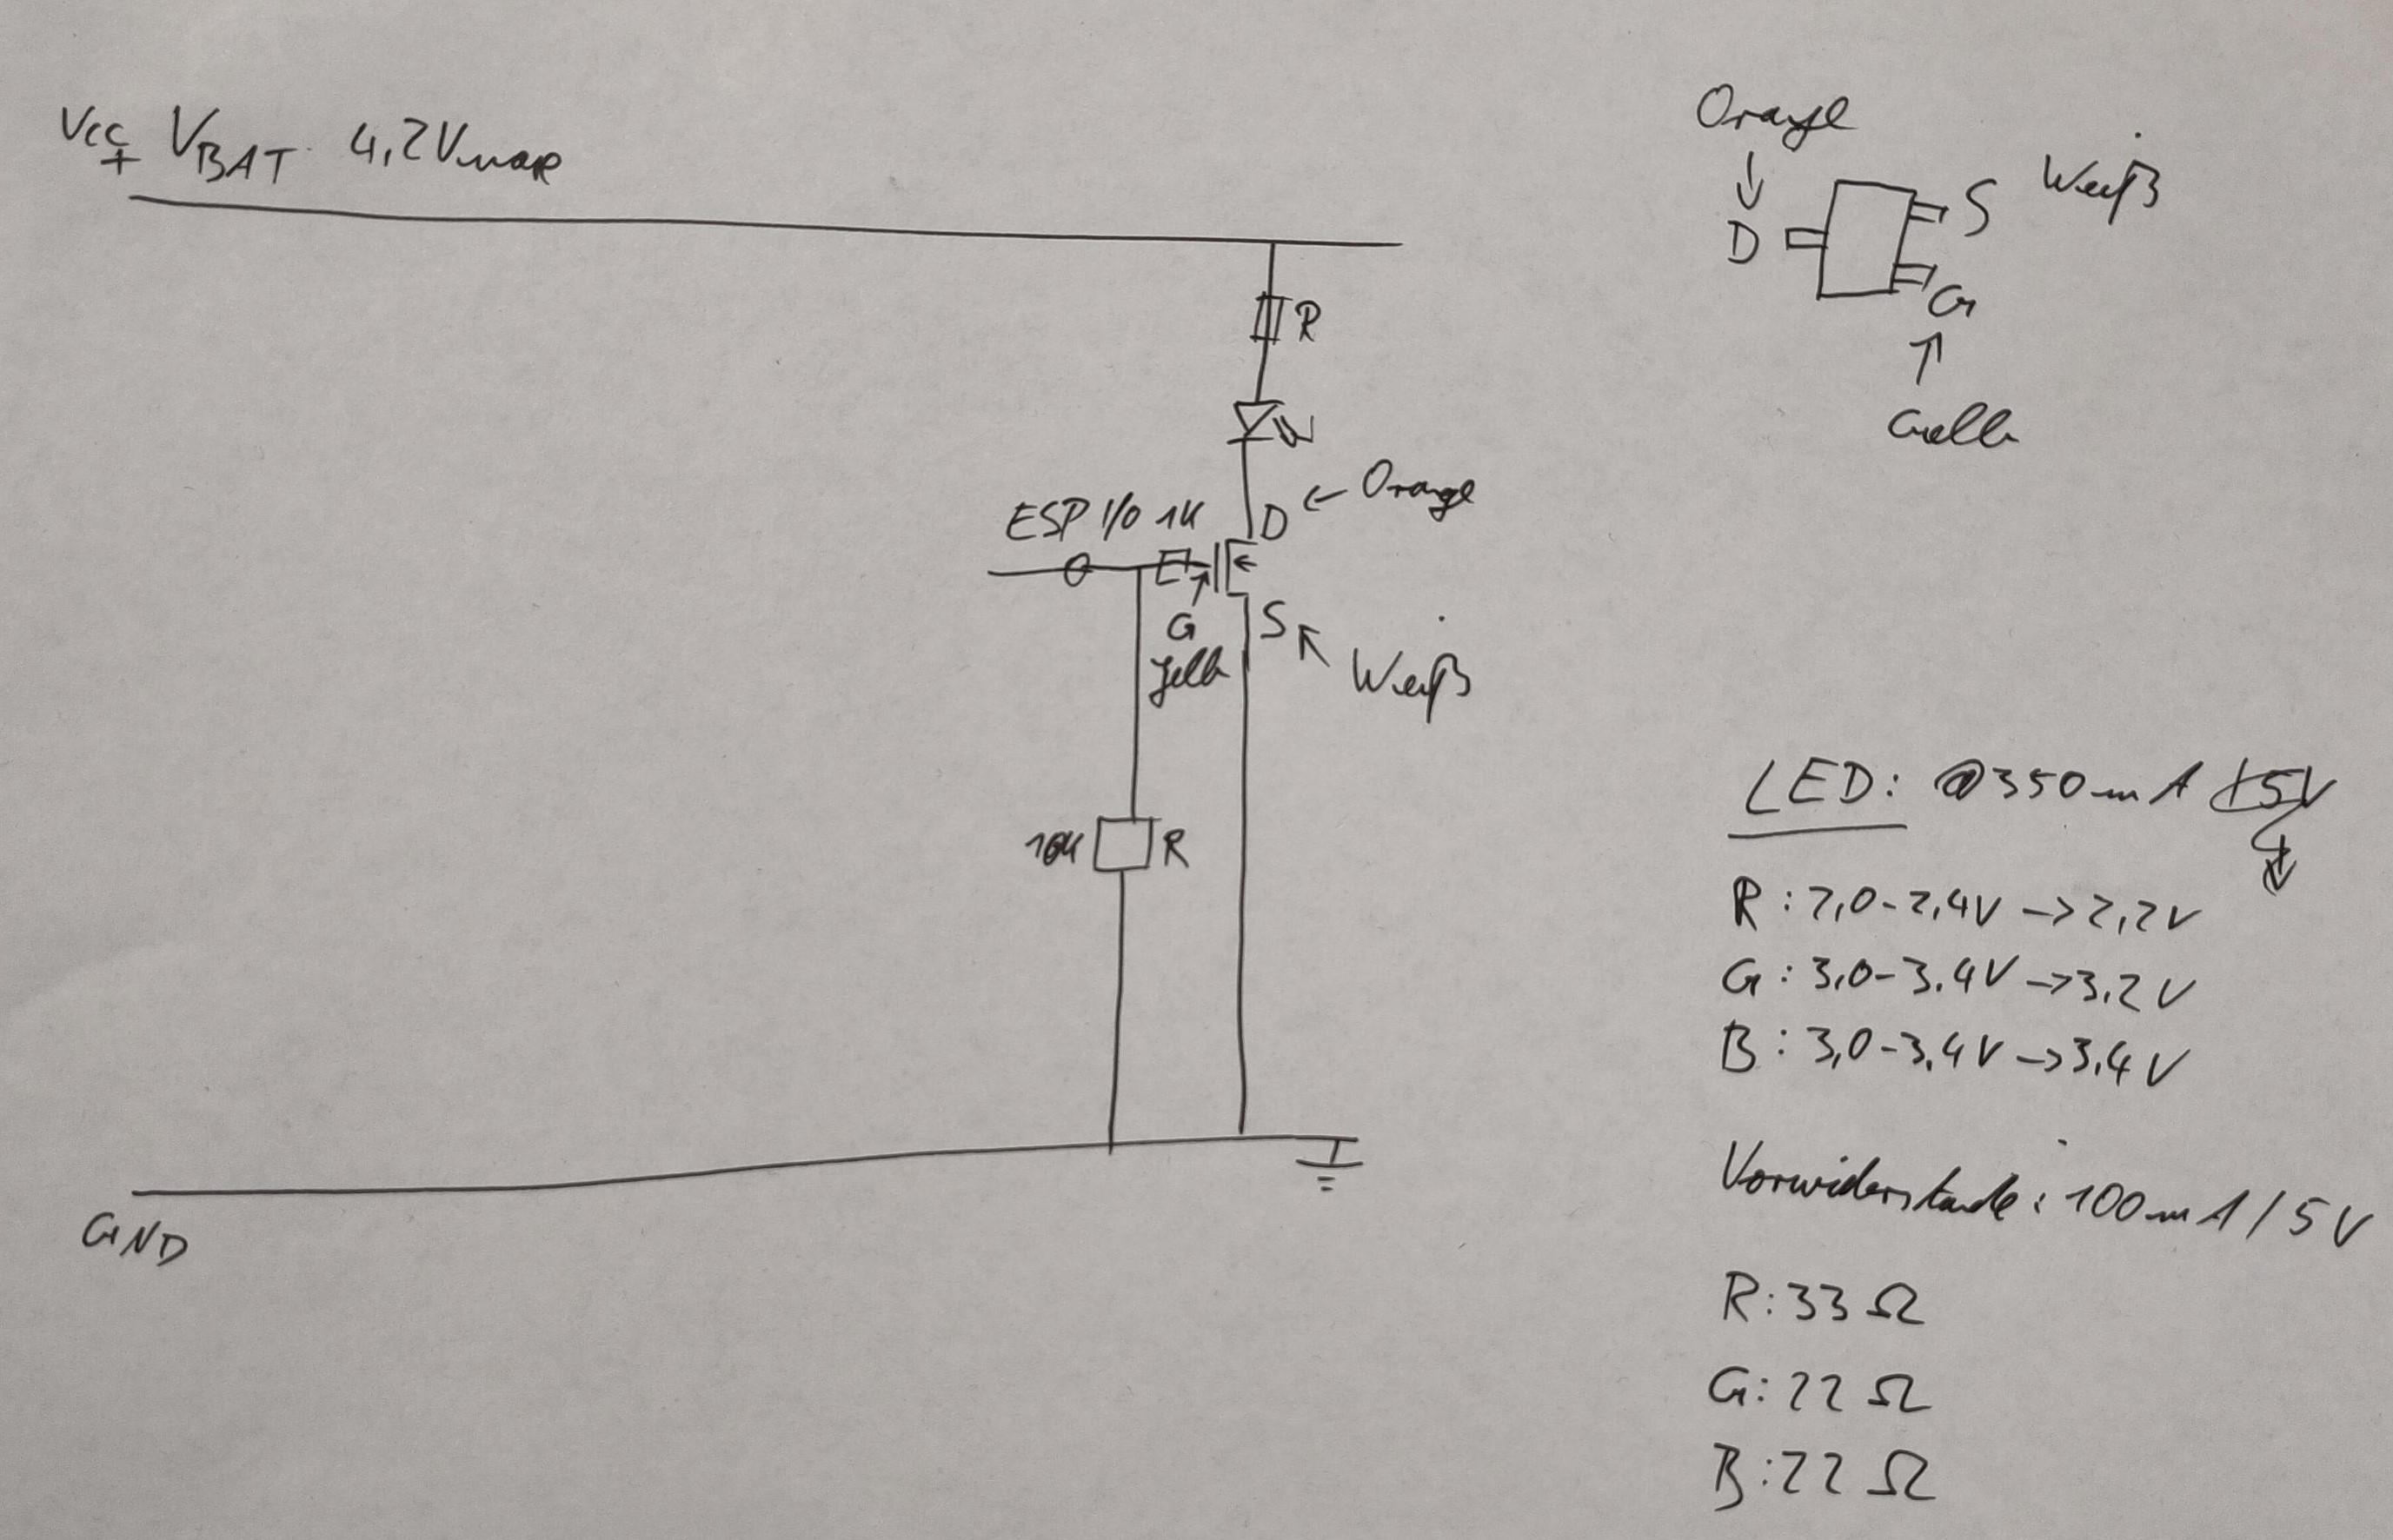 Vcc
+ VBAT 4,2Vmax
R
ESP I/O 1K
D ← Orange
G
gelb
S
Weiß
10K R
GND
Orange
↓
D
S Weiß
G
↑
Gelb
LED: @350mA
R: 2,0-2,4V → 2,2V
G: 3,0-3.4V → 3.2V
B: 3,0-3.4V → 3.4V
Vorwiderstände: 100mA/5V
R: 33 Ω
G: 22 Ω
B: 22 Ω